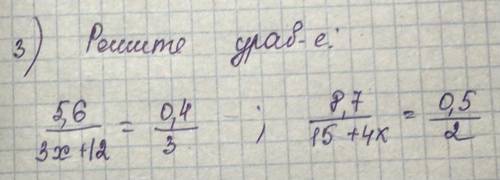 3) Решите урав-е:
5,6/(3x+12) = 0,4/3 ; 8,7/(15+4x) = 0,5/2